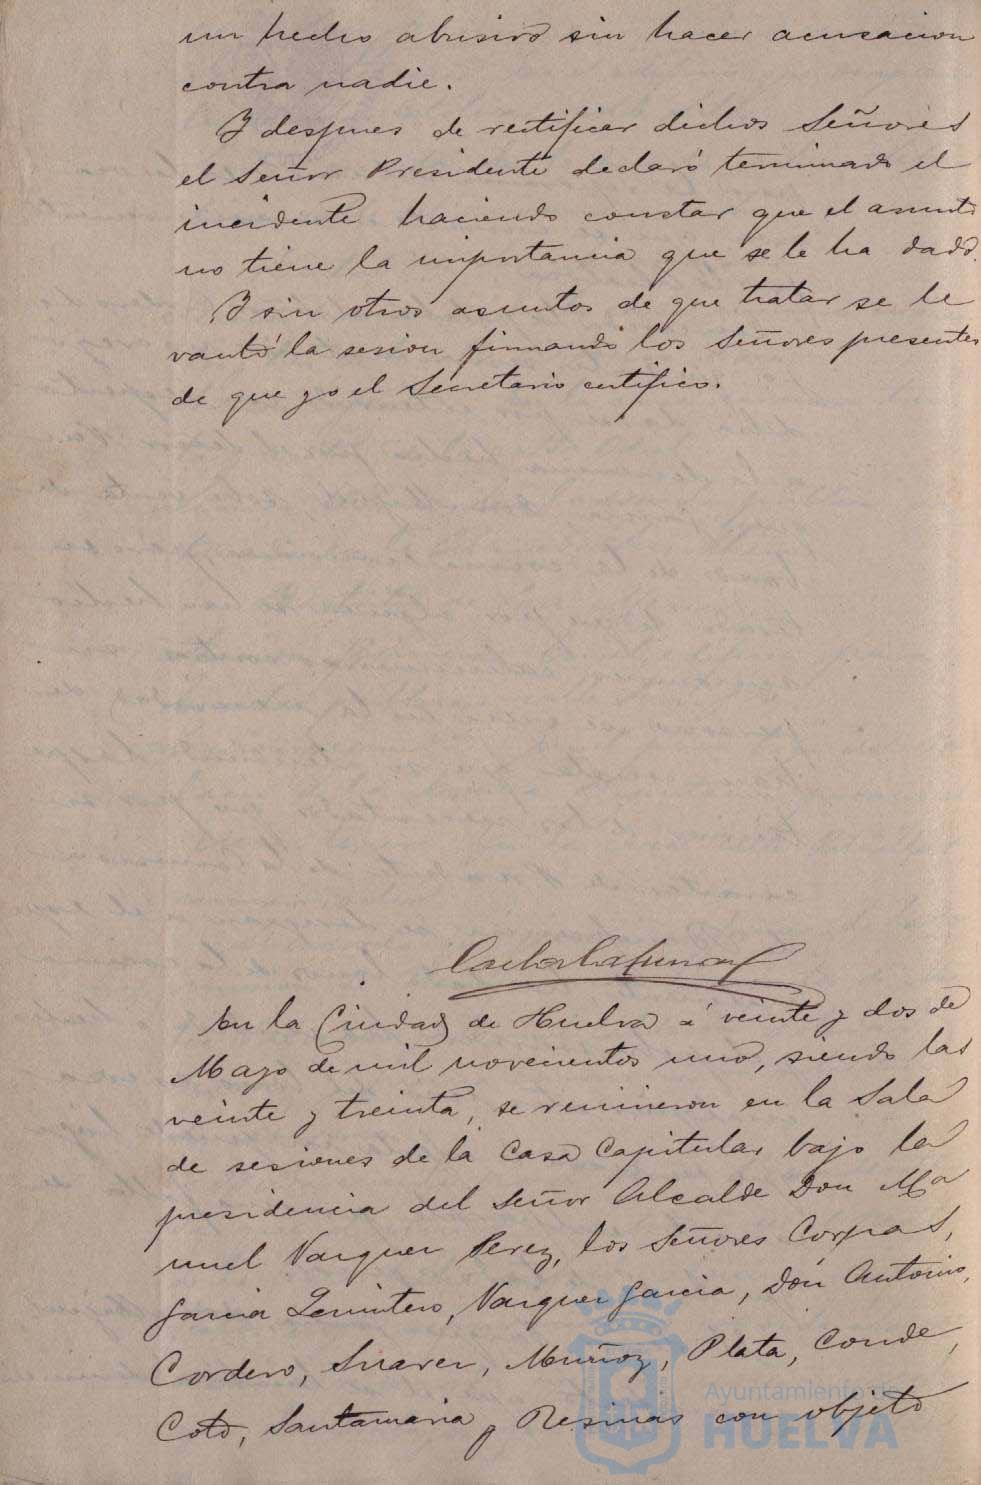 un hecho abusivo sin hacer acusacion
contra nadie.
Y despues de rectificar dichos Señores
el Señor Presidente declaró terminado el
incidente haciendo constar que el asunto
no tiene la importancia que se le ha dado.
Y sin otros asuntos de que tratar se le
vantó la sesion firmando los Señores presentes
de que yo el Secretario certifico.
En la Ciudad de Huelva á veinte y dos de
Mayo de mil novecientos uno, siendo las
veinte y treinta, se reunieron en la Sala
de sesiones de la Casa Capitular bajo la
presidencia del Señor Alcalde Don Ma
nuel Vazquez Perez, los Señores Corpas,
Garcia Quintero, Vazquez Garcia, Don Antonio,
Cordero, Suarez, Muñoz, Plata, Conde,
Coto, Santamaria y Resinas con objeto
Ayuntamiento de
HUELVA